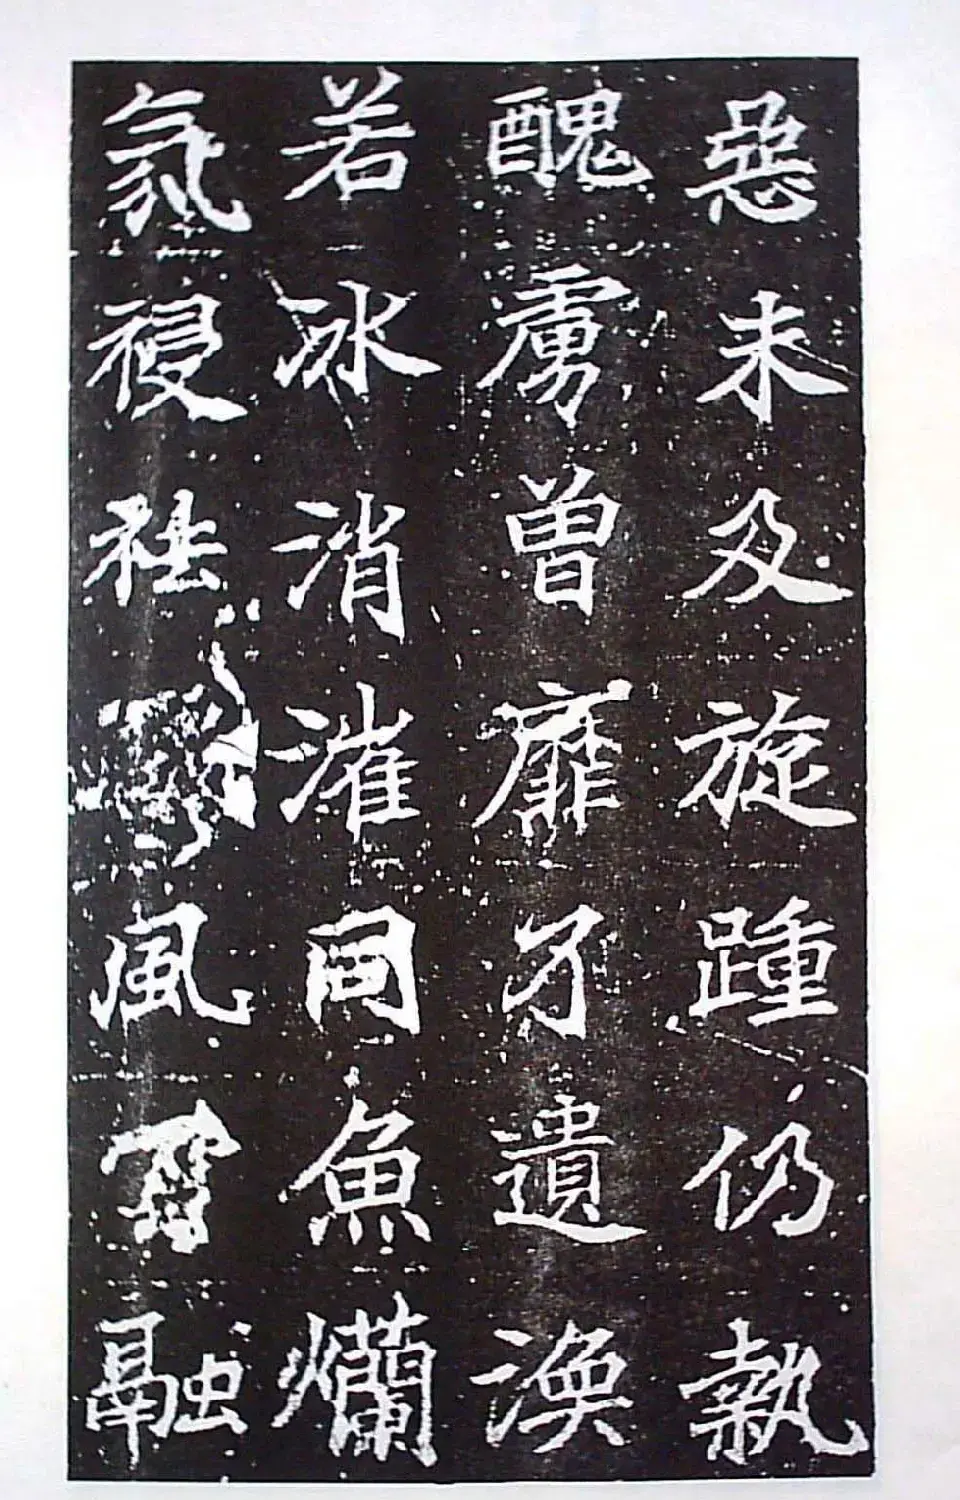 惡未及旋踵仍執
醜虜曾靡孑遺渙
若冰消漼同魚爛
氛祲祛風雪融